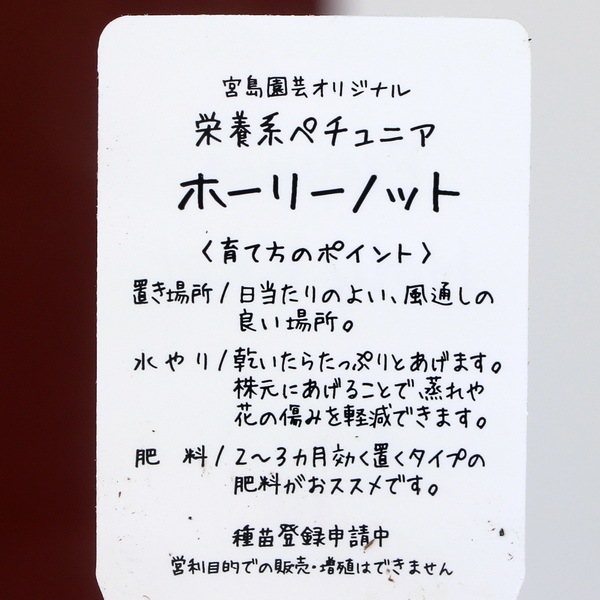 宮島園芸オリジナル
栄養系ペチュニア
ホーリーノット
〈育て方のポイント〉
置き場所/日当たりのよい、風通しの
良い場所。
水やり/乾いたらたっぷりとあげます。
株元にあげることで、蒸れや
花の傷みを軽減できます。
肥 料/2〜3カ月効く置くタイプの
肥料がおススメです。
種苗登録申請中
営利目的での販売・増殖はできません